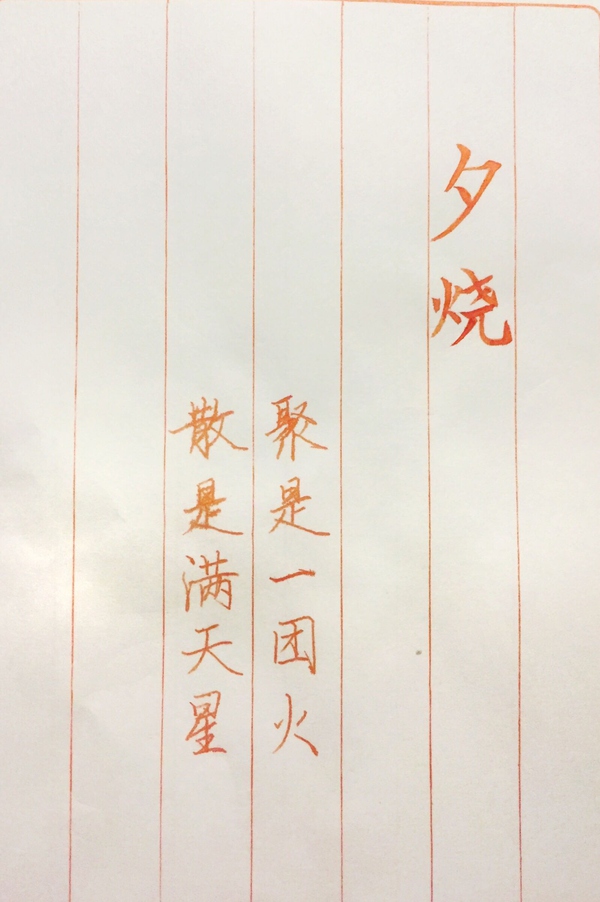 夕烧
聚是一团火
散是满天星